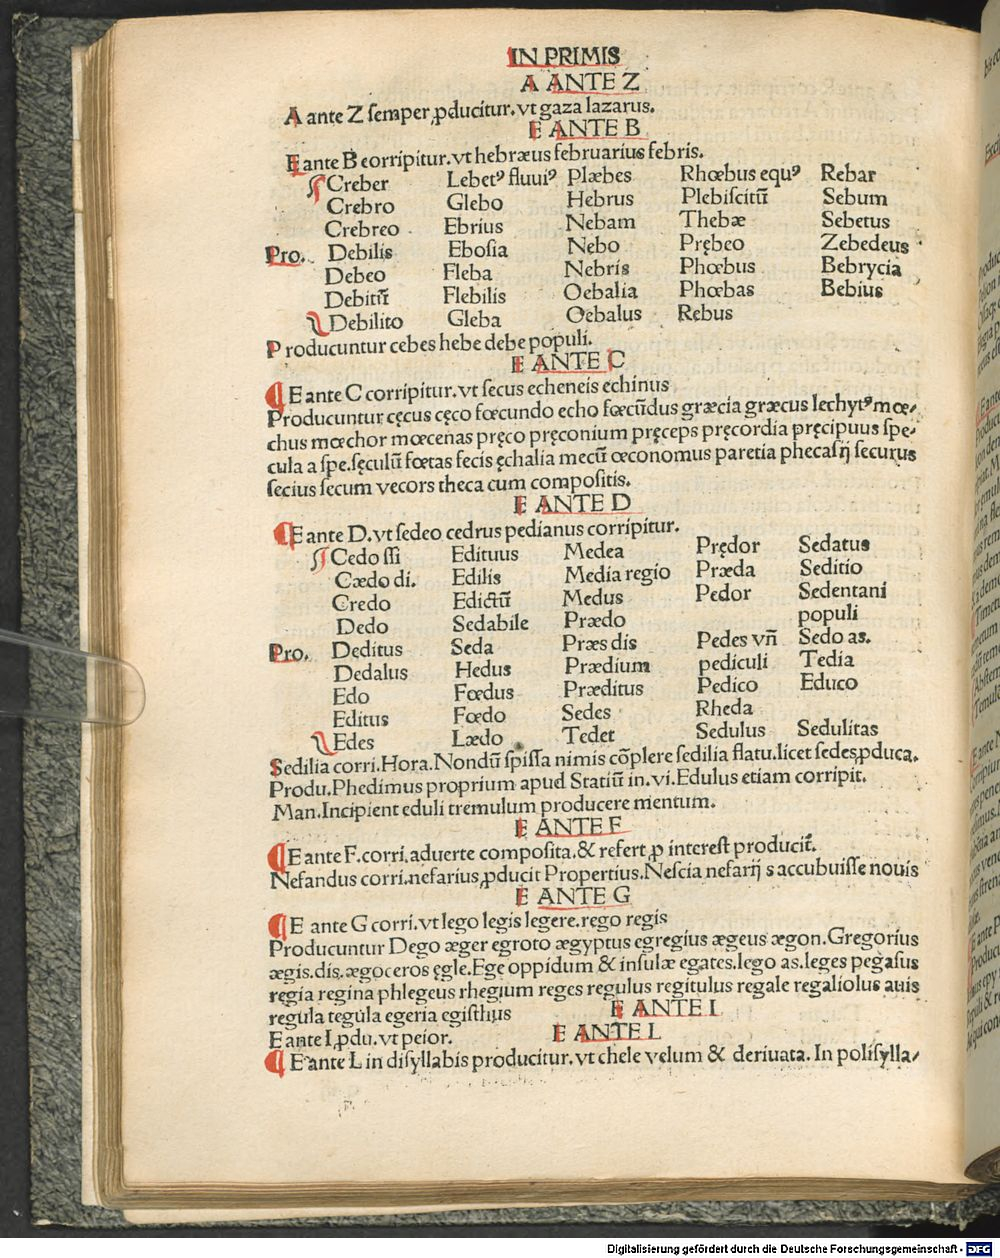 IN PRIMIS
A ANTE Z
A ante Z semper ꝓducitur.vt gaza lazarus.
E ANTE B
E ante B corripitur.vt hebræus februarius febris.
Creber Lebetꝰ fluuiꝰ Plæbes Rhœbus equꝰ Rebar
Crebro Glebo Hebrus Plebiscitū Sebum
Crebreo Ebrius Nebam Thebæ Sebetus
Pro. Debilis Ebosia Nebo Prębeo Zebedeus
Debeo Fleba Nebris Phœbus Bebrycia
Debitū Flebilis Oebalia Phœbas Bebius
Debilito Gleba Oebalus Rebus
Producuntur cebes hebe debe populi.
E ANTE C
¶ E ante C corripitur.vt secus echeneis echinus
Producuntur cęcus cęco fœcundo echo fœcūdus græcia græcus lechytꝰ mœ-
chus mœchor mœcenas pręco pręconium pręceps pręcordia pręcipuus spe-
cula a spe.sęculū fœtas fecis ęchalia mecū œconomus paretia phecasij securus
secius secum vecors theca cum compositis.
E ANTE D
¶ E ante D.vt sedeo cedrus pedianus corripitur.
Cedo ssi Edituus Medea Prędor Sedatus
Cædo di. Edilis Media regio Præda Seditio
Credo Edictū Medus Pedor Sedentani
Dedo Sedabile Prædo populi
Pro. Deditus Seda Præs dis Pedes vn̄ Sedo as.
Dedalus Hedus Prædium pediculi Tedia
Edo Fœdus Præditus Pedico Educo
Editus Fœdo Sedes Rheda
Edes Lædo Tedet Sedulus Sedulitas
Sedilia corri.Hora.Nondū spissa nimis cōplere sedilia flatu.licet sedes ꝓduca.
Produ.Phedimus proprium apud Statiū in.vi.Edulus etiam corripit.
Man.Incipient eduli tremulum producere mentum.
E ANTE F
¶ E ante F.corri.aduerte composita.& refert ꝓ interest producit̄.
Nefandus corri.nefarius ꝓducit Propertius.Nescia nefarij s accubuisse nouis
E ANTE G
¶ E ante G corri.vt lego legis legere.rego regis
Producuntur Dego æger egroto ægyptus egregius ægeus ægon.Gregorius
ægis.dis.ægoceros ęgle.Ege oppidum & insulæ egates.lego as.leges pegasus
regia regina phlegeus rhegium reges regulus regitulus regale regaliolus auis
regula tegula egeria egisthus E ANTE I
E ante I ꝓdu.vt peior. E ANTE L
¶ E ante L in disyllabis producitur.vt chele velum & deriuata. In polisylla-
Digitalisierung gefördert durch die Deutsche Forschungsgemeinschaft - DFG